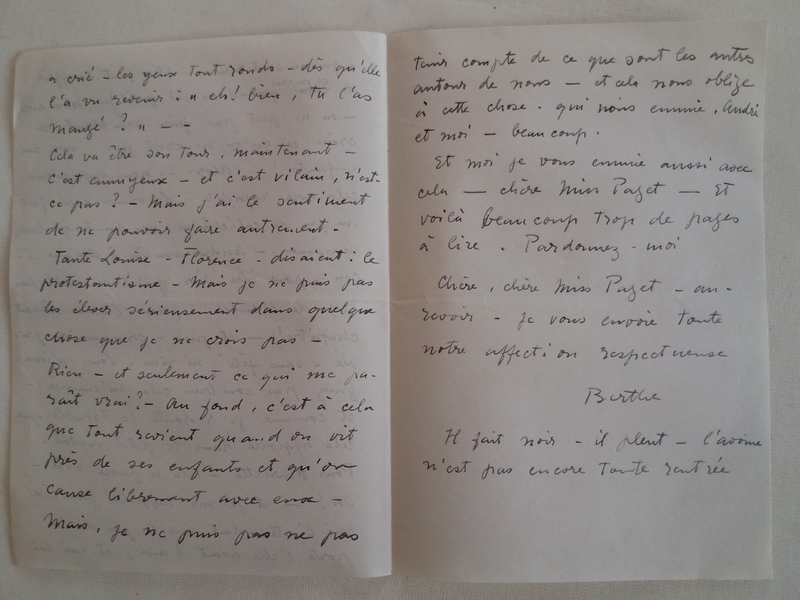 a crié - les yeux tout ronds - dès qu'elle
l'a vu revenir : " eh! bien, tu l'as
mangé ? " - -
Cela va être son tour, maintenant -
c'est ennuyeux - et c'est vilain, n'est-
ce pas ? - Mais j'ai le sentiment
de ne pouvoir faire autrement -
Tante Louise - Florence - disaient : le
protestantisme - Mais je ne puis pas
les élever sérieusement dans quelque
chose que je ne crois pas -
Rien - et seulement ce qui me pa-
raît vrai ? - Au fond, c'est à cela
que tout revient quand on vit
près de ses enfants et qu'on
cause librement avec eux -
Mais, je ne puis pas ne pas
tenir compte de ce que sont les autres
autour de nous - et cela nous oblige
à cette chose - qui nous ennuie, André
et moi - beaucoup.
Et moi je vous ennuie aussi avec
cela - chère Miss Paget - Et
voilà beaucoup trop de pages
à lire. Pardonnez-moi
Chère, chère Miss Paget - au-
revoir - je vous envoie toute
notre affection respectueuse
Berthe
Il fait noir - il pleut - l'avoine
n'est pas encore toute rentrée